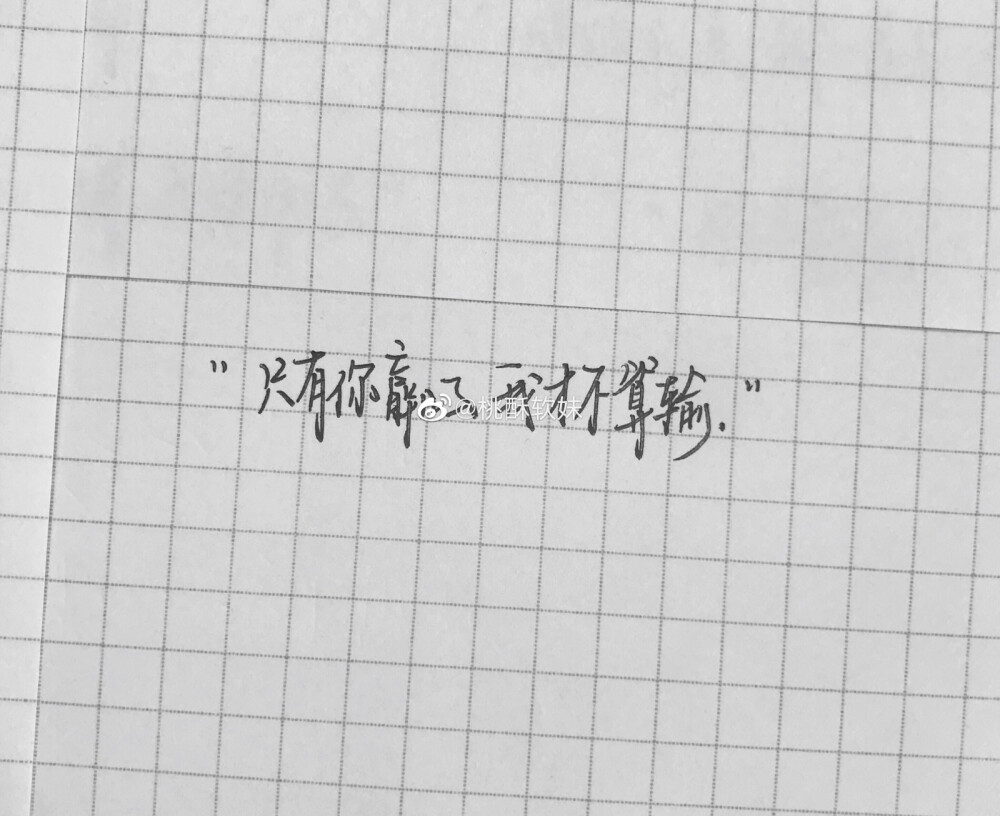 "只有你赢了 我才不算输."
@桃酥软妹